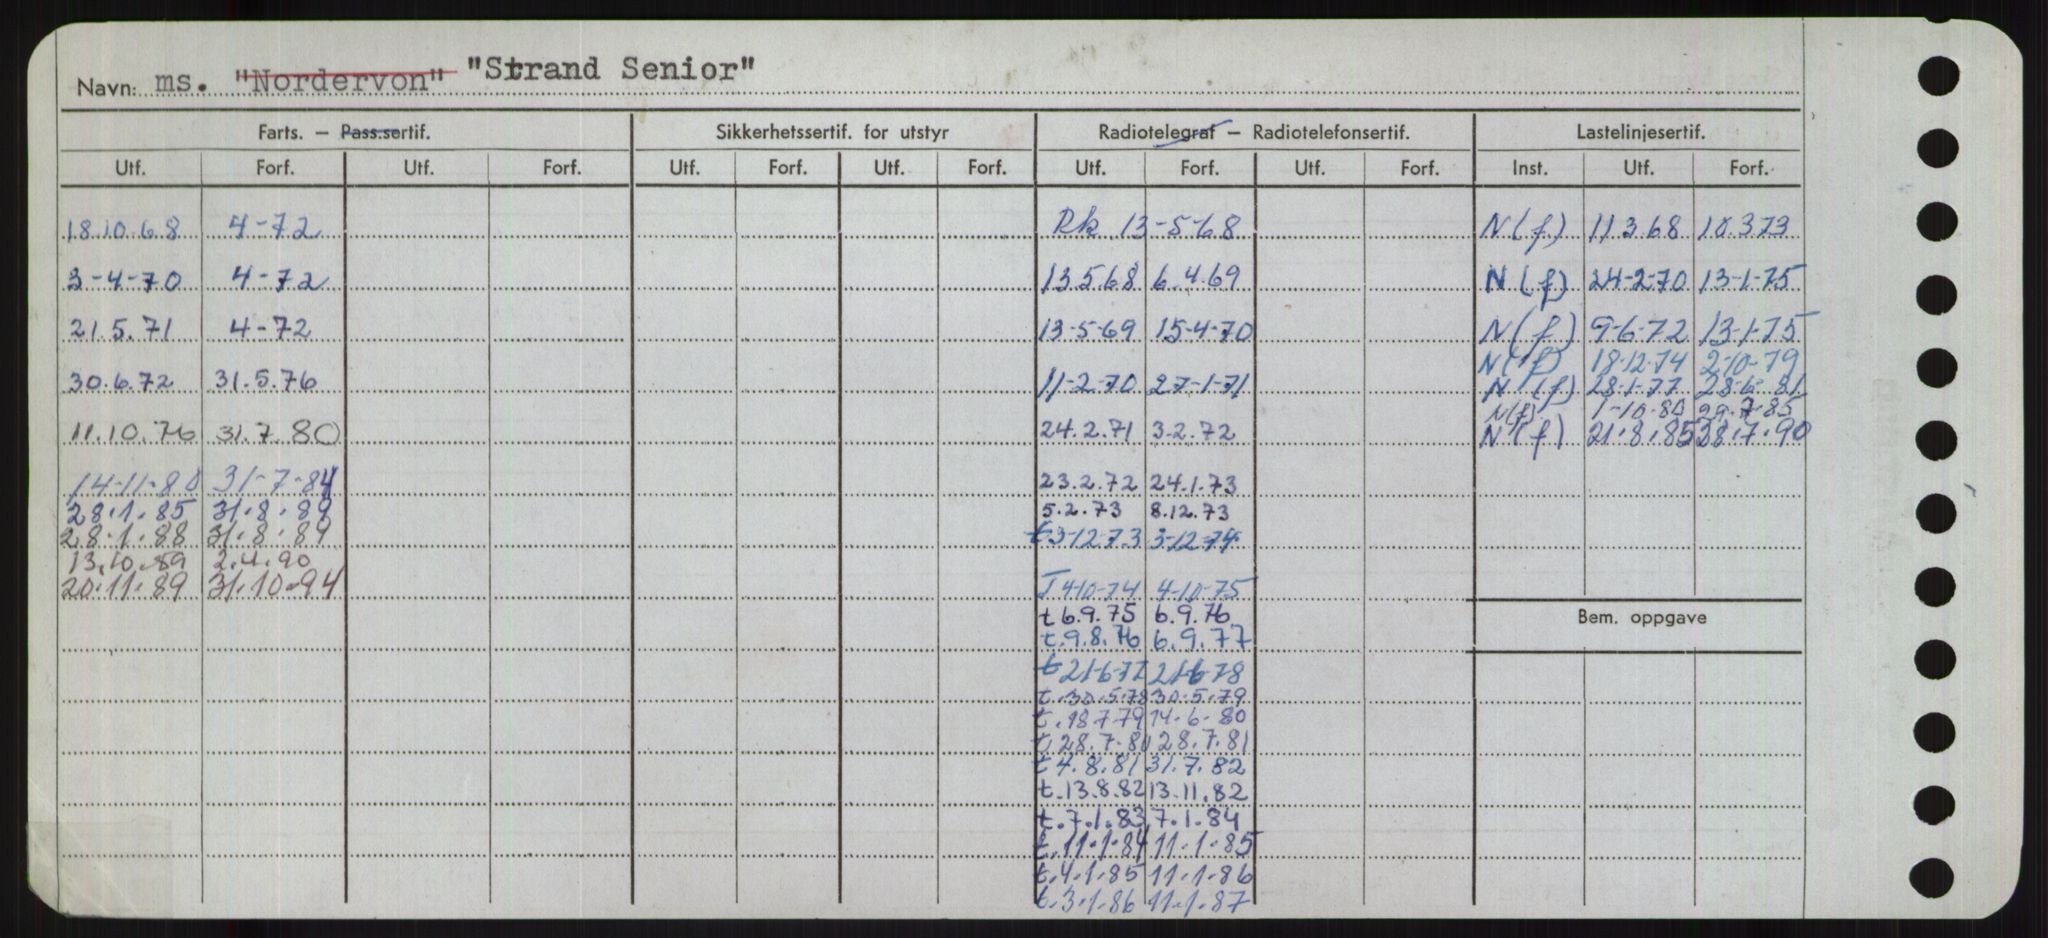 Navn: ms. "Nordervon" "Strand Senior"
Farts. — Pass.sertif. Sikkerhetssertif. for utstyr Radiotelegraf — Radiotelefonsertif. Lastelinjesertif.
Utf. Forf. Utf. Forf. Utf. Forf. Utf. Forf. Utf. Forf. Utf. Forf. Inst. Utf. Forf.
18.10.68 4-72 Rk 13-5-68 N(f) 11.3.68 10.3.73
3-4-70 4-72 13.5.68 6.4.69 N(f) 24-2-70 13-1-75
21.5.71 4-72 13-5-69 15-4-70 N(f) 9-6-72 13-1-75
N(f) 18-12-74 2-10-79
30.6.72 31.5.76 11-2-70 27-1-71 N(f) 28-1-77 28-6-81
N(f) 1-10-80 29.7.85
11.10.76 31.7.80 24.2.71 3.2.72 N(f) 21.8.85 28.7.90
14-11-80 31-7-84 23.2.72 24.1.73
28.1.85 31.8.89 5.2.73 8.12.73
28.1.88 31.8.89 t 3-12-73 3-12-74
13.10.89 2.4.90
20.11.89 31.10.94 T 4-10-74 4-10-75
t 6.9.75 6.9.76
Bem. oppgave
t.9.8.76 6.9.77
t 21-6-77 21-6-78
t.30.5.78 30.5.79
t.18.7.79 14.6.80
t.28.7.80 28.7.81
t 4.8.81 31.7.82
t.13.8.82 13.11.82
t.7.1.83 7.1.84
t.11.1.84 11.1.85
t.4.1.85 11.1.86
t.3.1.86 11.1.87